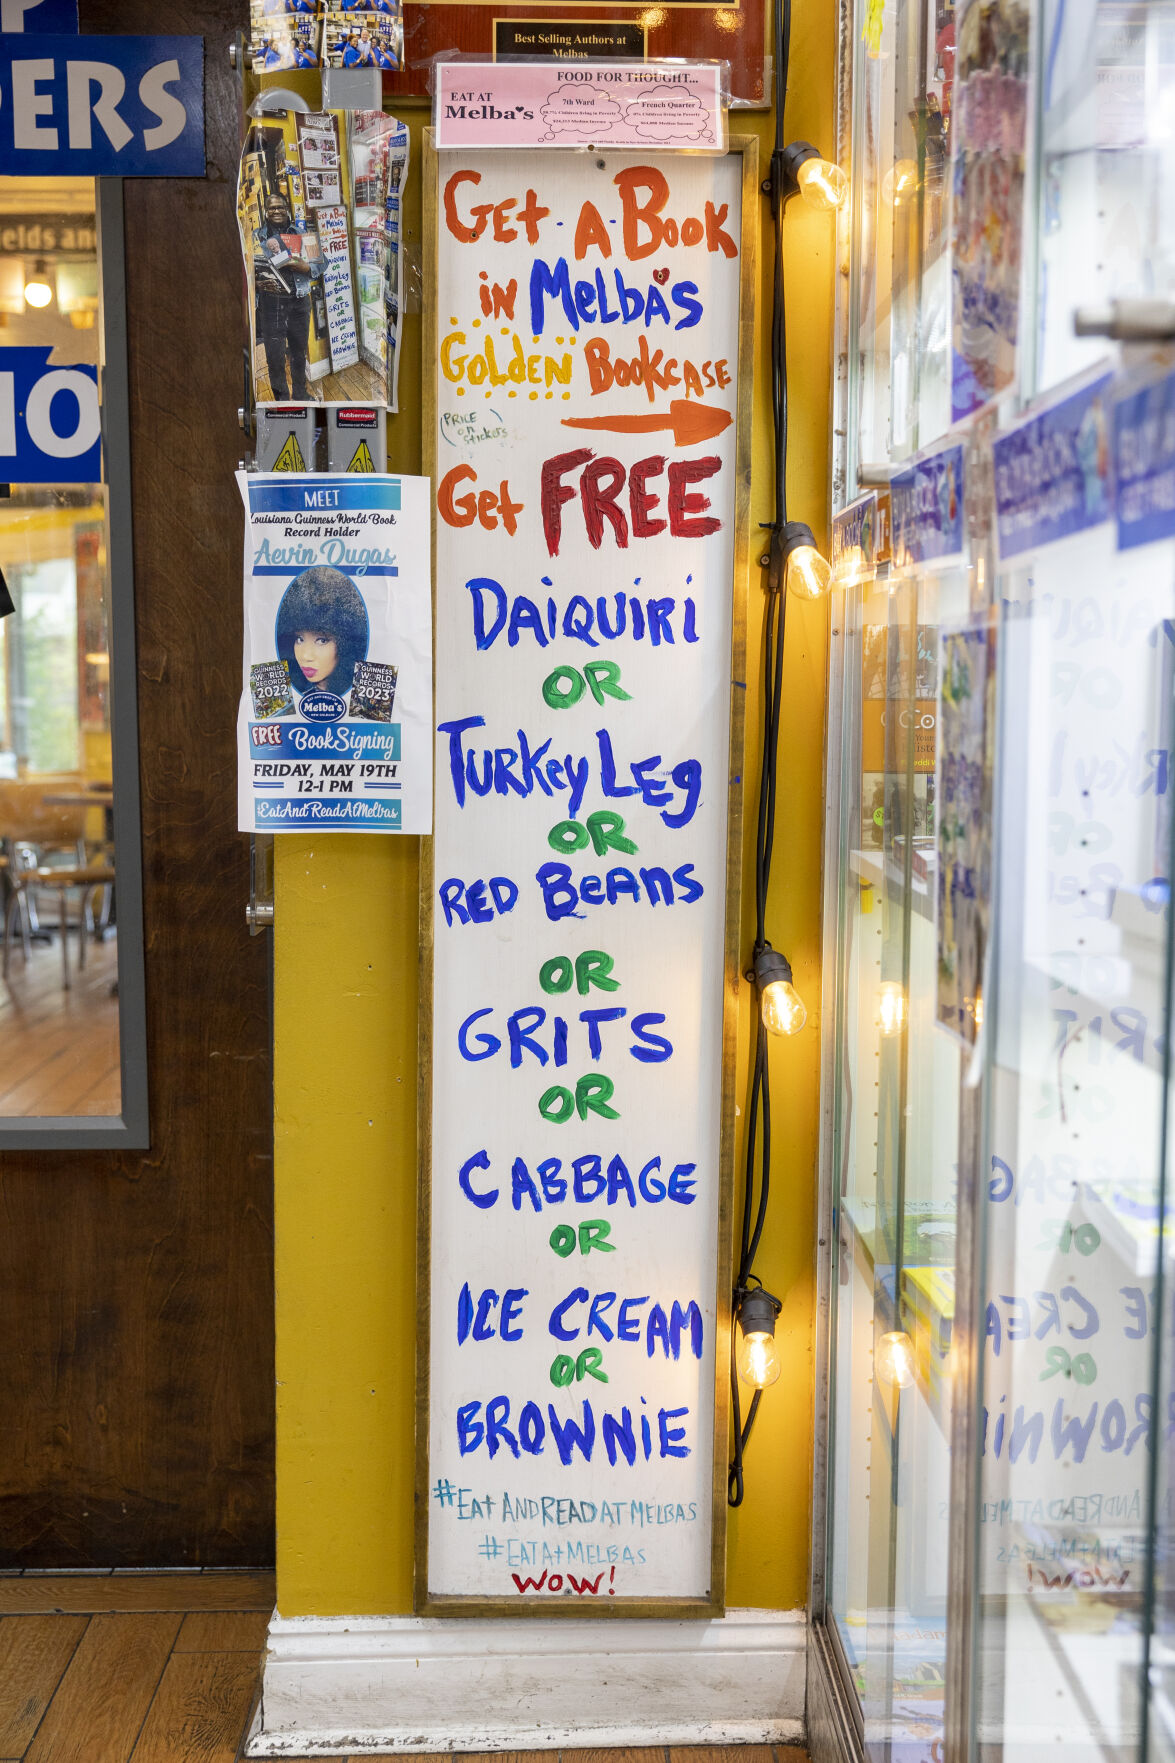 Best Selling Authors at
Melbas
FOOD FOR THOUGHT...
EAT AT
Melba's
7th Ward
French Quarter
ERS
Get·A·Book
in Melba's
Golden Bookcase
(Price
on
stickers)
Get FREE
DAIQUIRI
OR
TURKey Leg
OR
RED BeAns
OR
GRITS
OR
CABBAGE
OR
ICE CREAM
OR
BROWNiE
#EAt ANDREADATMELBAS
#EATAtMELBAS
WOW!
Rubbermaid
Commercial Products
Commercial Products
MEET
Louisiana Guinness World Book
Record Holder
Aevin Dugas
GUINNESS
WORLD
RECORDS
2022
GUINNESS
WORLD
RECORDS
2023
Melba's
FREE Book Signing
FRIDAY, MAY 19TH
12-1 PM
#EatAndReadAtMelbas